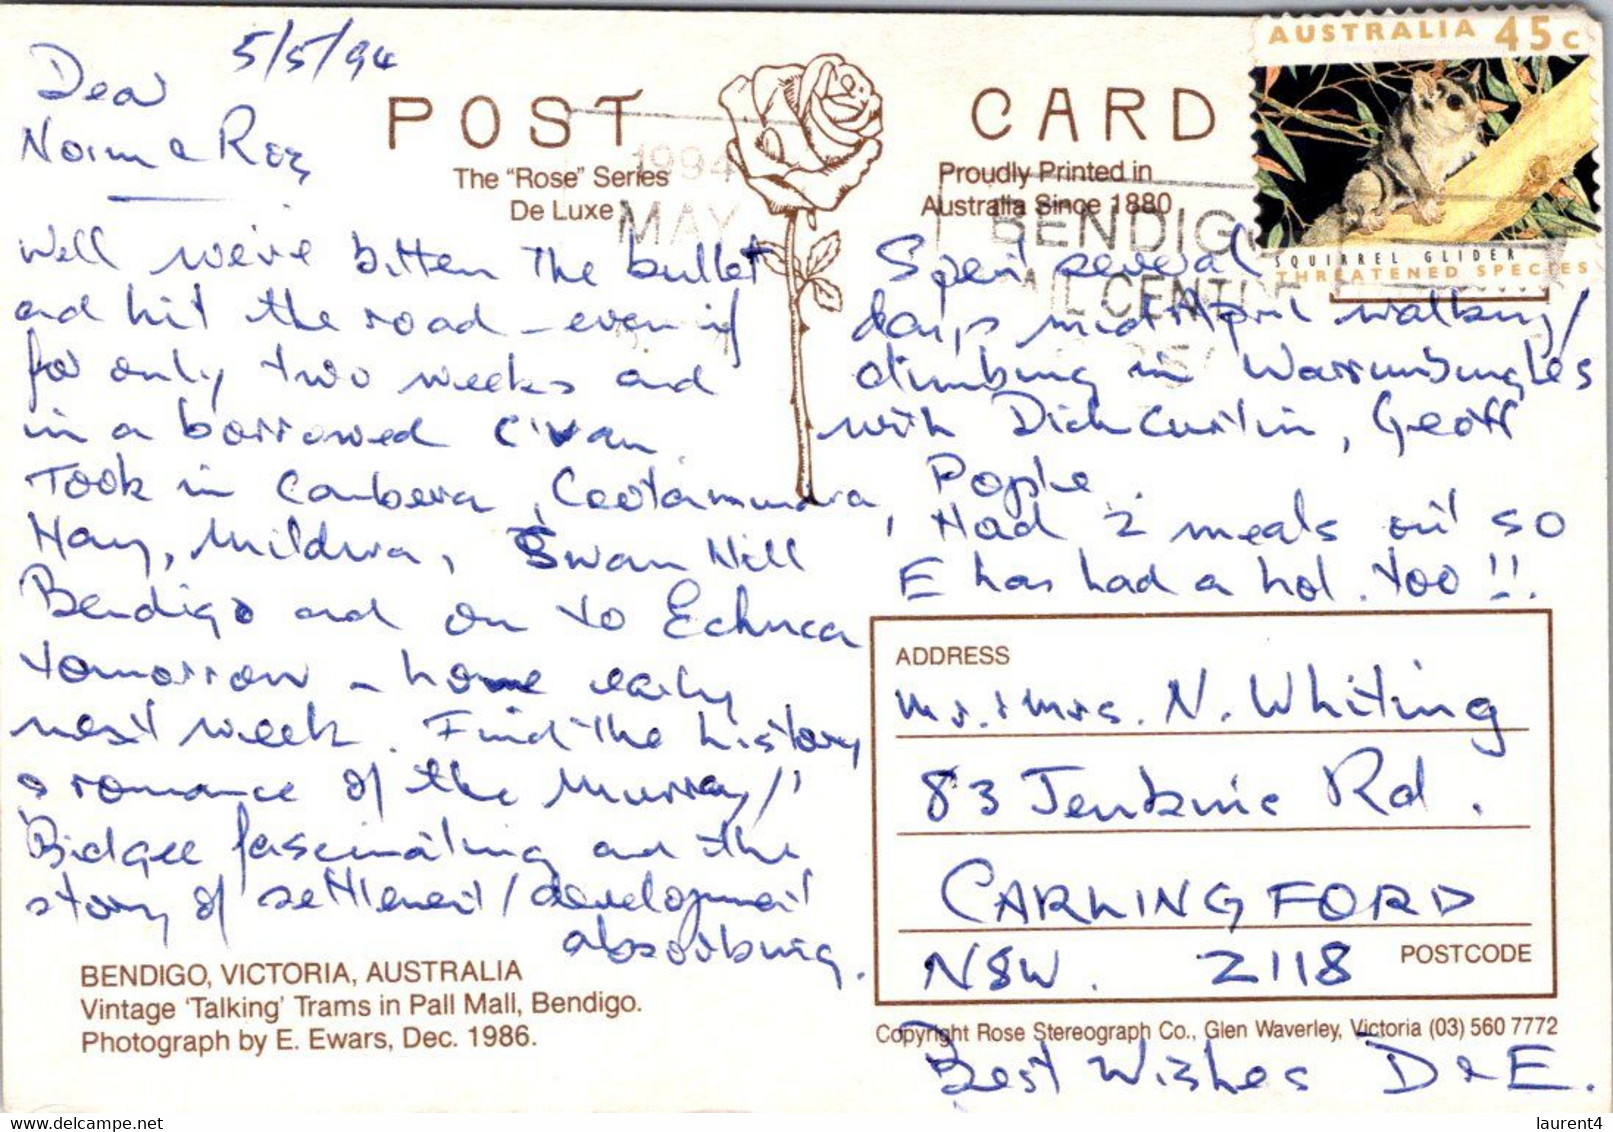 5/5/94
Dear
Norm & Roz
POST CARD
The "Rose" Series
De Luxe
Proudly Printed in
Australia Since 1880
AUSTRALIA 45c
SQUIRREL GLIDER
THREATENED SPECIES
1994
MAY
BENDIGO
MAIL CENTRE
Well we've bitten the bullet
and hit the road - even if
for only two weeks and
in a borrowed c'van.
Took in Canberra, Cootamundra,
Hay, Mildura, Swan Hill
Bendigo and on to Echuca
tomorrow - home early
next week. Find the history
& romance of the Murray/'
Bidgee fascinating and the
story of settlement/development
absorbing.
Spent several
days mid April walking/
climbing in Warrumbungles
with Dick Curtin, Geoff
Pople.
Had 2 meals out so
E has had a hol. too!!.
ADDRESS
Mr. & Mrs. N. Whiting
83 Jenkins Rd.
CARLINGFORD
NSW. 2118 POSTCODE
BENDIGO, VICTORIA, AUSTRALIA
Vintage 'Talking' Trams in Pall Mall, Bendigo.
Photograph by E. Ewars, Dec. 1986.
Copyright Rose Stereograph Co., Glen Waverley, Victoria (03) 560 7772
Best Wishes D & E.
www.delcampe.net
laurent4